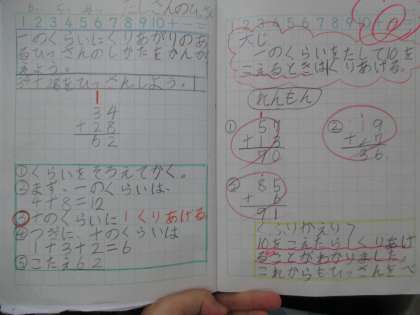 たしざんのひっさん
1 2 3 4 5 6 7 8 9 10
一のくらいにくりあがりのあ
るひっさんのしかたをかんが
えよう。
34+28をひっさんしよう。
1
34
+28
62
①くらいをそろえてかく。
②まず、一のくらいは、
4+8=12
③十のくらいに1くりあげる
④つぎに、十のくらいは
1+3+2=6
⑤こたえ62
2 3 4 5 6 7 8 9 10
大じ
一のくらいをたして10を
こえるときはくりあげる。
れんもん
① 57
+13
90
② 19
+27
36
③ 85
+6
91
くふりかえり>
10をこえたら1くりあげ
ることがわかりました。
これからもひっさんをべ